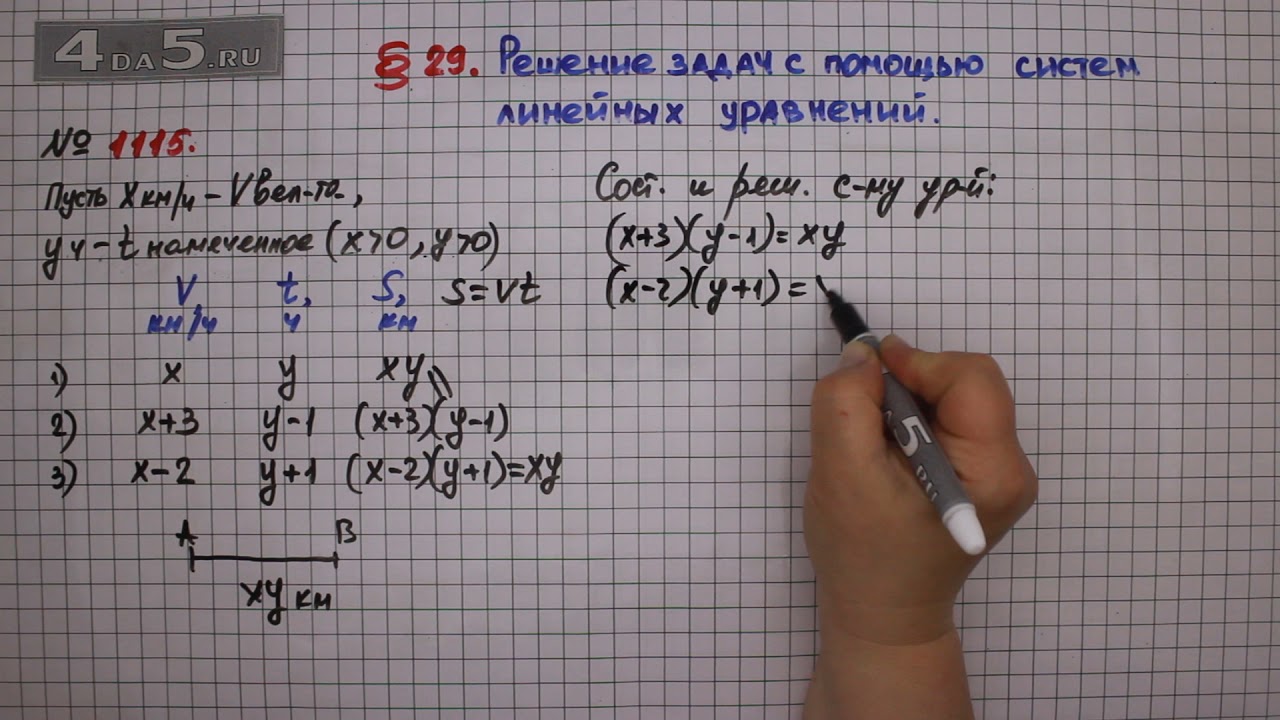 4DA5.RU
§ 29. Решение задач с помощью систем
линейных уравнений.
№ 1115.
Пусть х км/ч – V вел-та,
у ч – t намеченное (х>0, у>0)
V, t, S, S=Vt
км/ч ч км
1) х у ху
2) х+3 у-1 (х+3)(у-1)
3) х-2 у+1 (х-2)(у+1)=ху
А В
ху км
Сост. и реш. с-му ур-й:
(х+3)(у-1)=ху
(х-2)(у+1)=
5
RU